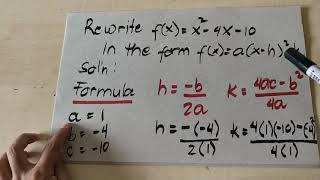 Rewrite f(x) = x² - 4x - 10
In the form f(x) = a(x-h)² k
Soln:
Formula
h = -b / 2a
k = 4ac - b² / 4a
a = 1
b = -4
c = -10
h = -(-4) / 2(1)
k = 4(1)(-10) - (-4)² / 4(1)